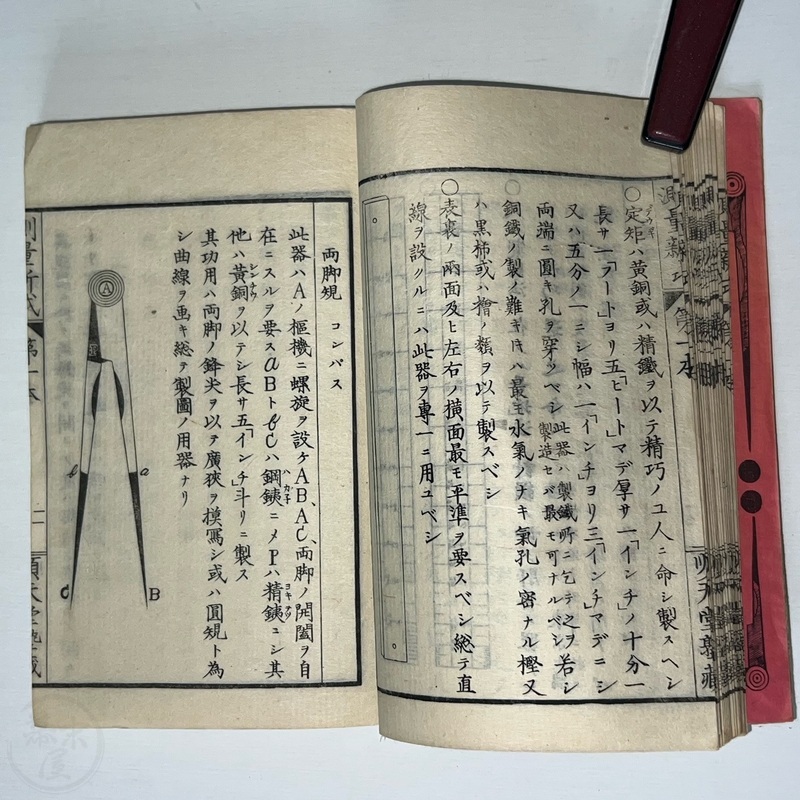 測量新式
第一本
順天堂塾蔵
○定矩ハ黄銅或ハ精鐵ヲ以テ精巧ノ工人ニ命シ製スヘシ
長サ一「フート」ヨリ五「ヒート」マデ厚サ一「インチ」ノ十分一
又ハ五分ノ一ニシ幅ハ一「インチ」ヨリ三「インチ」マデニシ
両端ニ圓キ孔ヲ穿ツベシ
此器ハ製鐵所ニ乞テ之ヲ若シ
製造セバ最モ可ナルベシ
銅鐵ノ製ノ難キ時ハ最モ水氣ノナキ氣孔ノ密ナル樫又
ハ黒柿或ハ檜ノ類ヲ以テ製スベシ
○表裏ノ兩面及ヒ左右ノ横面最モ平準ヲ要スベシ総テ直
線ヲ設クルニハ此器ヲ專一ニ用ユベシ
両脚規 コンパス
此器ハAノ樞機ニ螺旋ヲ設ケAB、AC、両脚ノ開闔ヲ自
在ニスルヲ要スaBトbCハ鋼銕ニメPハ精銕ニシ其
ハガネ
他ハ黄銅ヲ以テシ長サ五「インチ」斗リニ製ス
シンチウ
其功用ハ両脚ノ鋒尖ヲ以テ廣狹ヲ摸寫シ或ハ圓規ト為
シ曲線ヲ画キ総テ製圖ノ用器ナリ
A
b
a
C
B
測量新式
第一本
二
順天堂塾蔵